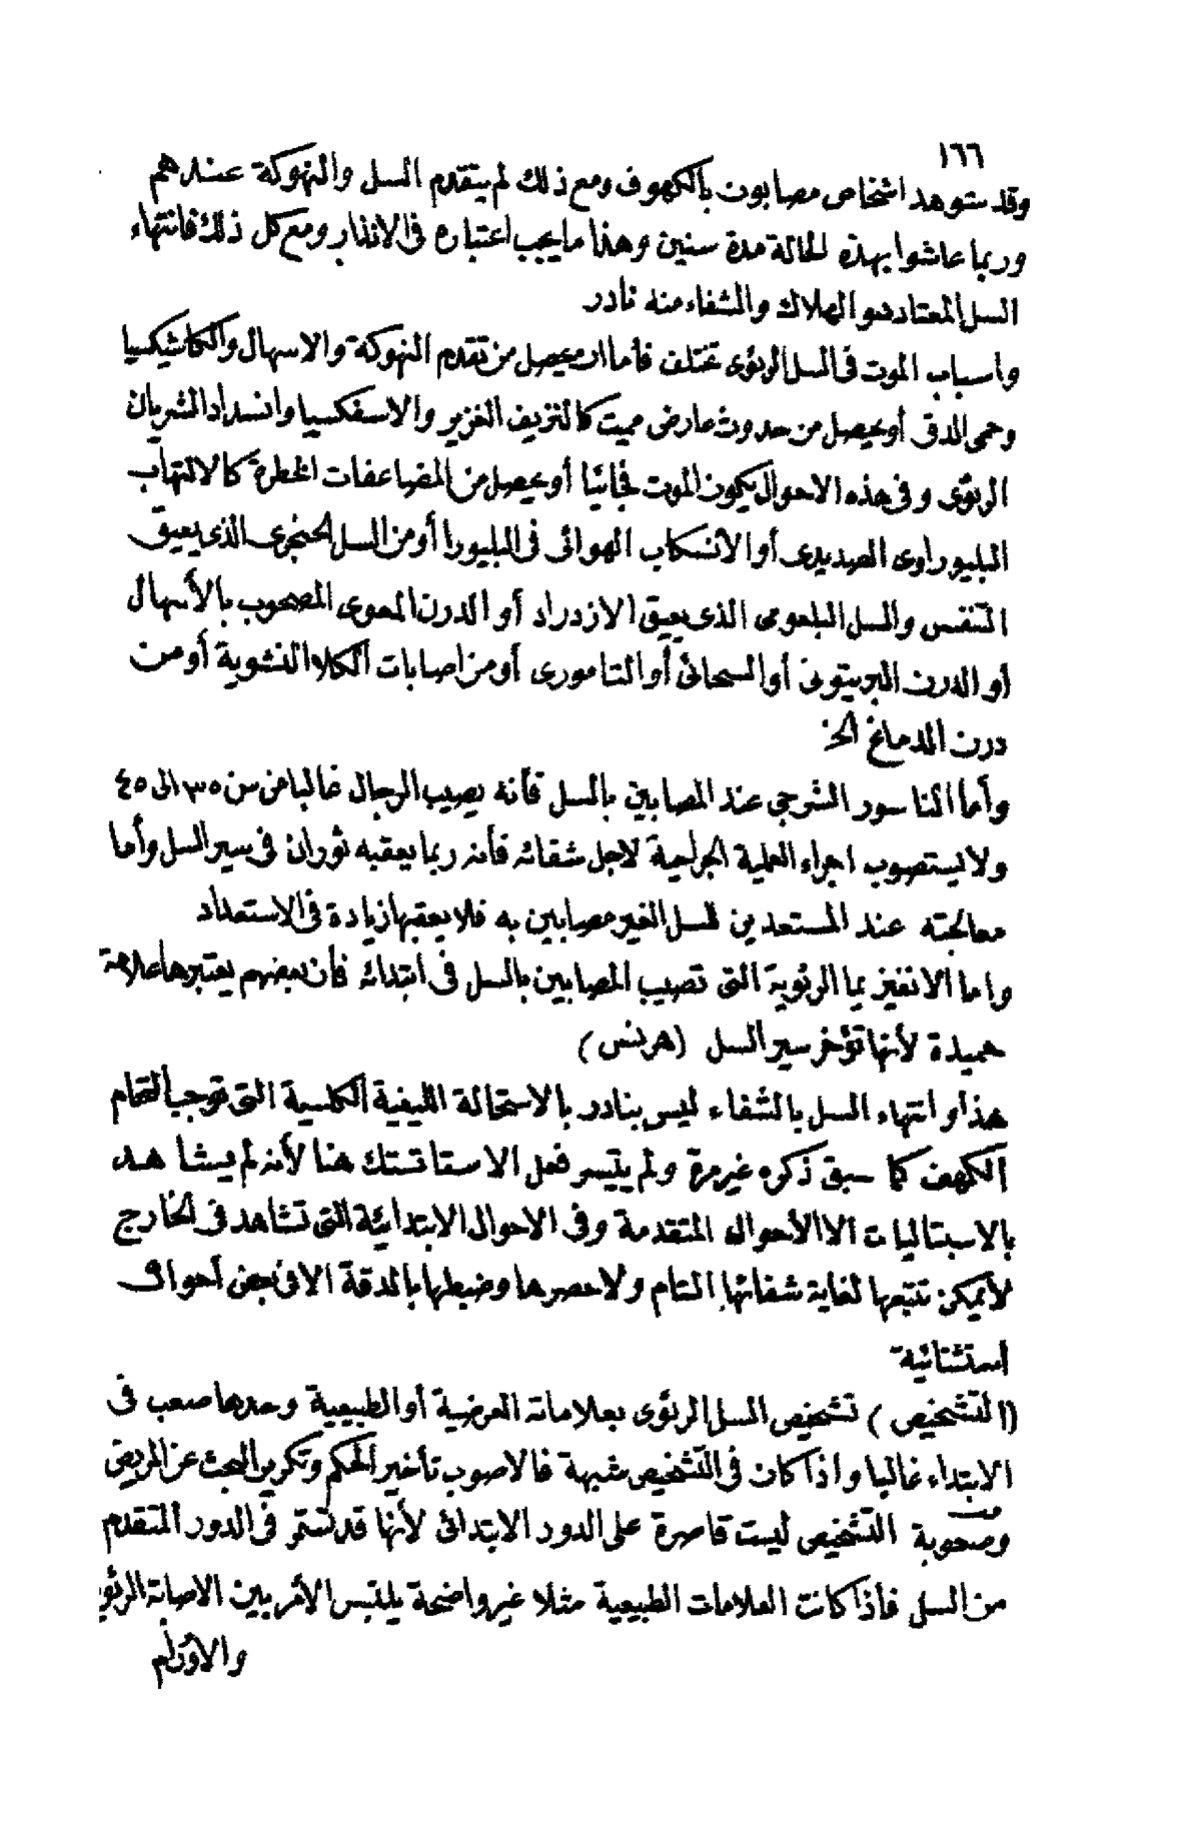 ١٦٦
وقد شوهد اشخاص مصابون بالكهوف ومع ذلك لم يتقدم السل والنهوكة عندهم
وربما عاشوا بهذه الحالة مدة سنين وهذا ما يجب اعتباره فى الانذار ومع كل ذلك فانتهاء
السل المعتاد هو الهلاك والشفاء منه نادر
واسباب الموت فى السل الرئوى تختلف فأما ان يحصل من تقدم النهوكة والاسهال والكاشيكسيا
وحمى الدق أو يحصل من حدوث عارض مميت كالنزيف الغزير والاسفكسيا وانسداد الشريان
الرئوى وفى هذه الاحوال يكون الموت فجائيا أو يحصل من المضاعفات الخطرة كالالتهاب
البليوراوى الصديدى أو الانسكاب الهوائى فى البليورا أو من السل الحنجرى الذى يعيق
التنفس والسل البلعومى الذى يعيق الازدراد أو الدرن المعوى المصحوب بالأسهال
أو الدرن البريتونى أو السحائى أو التامورى أو من اصابات الكلا النشوية أو من
درن الدماغ الخ
وأما الناسور الشرجى عند المصابين بالسل فأنه يصيب الرجال غالبا من سن ٣٥ الى ٤٥
ولا يستصوب اجراء العملية الجراحية لاجل شفائه فأنه ربما يعقبه ثوران فى سير السل وأما
معالجته عند المستعدين للسل الغير مصابين به فلا يعقبها زيادة فى الاستعداد
واما الانفيزيما الرئوية التى تصيب المصابين بالسل فى ابتدائه فأن بعضهم يعتبرها علامة
حميدة لأنها تؤخر سير السل (هرنس)
هذا وانتهاء السل بالشفاء ليس بنادر بالاستحالة الليفية الكلسية التى توجب التحام
الكهف كما سبق ذكره غير مرة ولم يتيسر فعل الاستاتستك هنا لأنه لم يشاهد
بالاسبتاليات الا الأحوال المتقدمة وفى الاحوال الابتدائية التى تشاهد فى الخارج
لا يمكن تتبعها لغاية شفائها التام ولا حصرها وضبطها بالدقة الا فى بعض أحوال
استثنائية
(التشخيص) تشخيص السل الرئوى بعلاماته العرضية أو الطبيعية وحدها صعب فى
الابتداء غالبا واذا كان فى التشخيص شبهة فالاصوب تأخير الحكم وتكرير البحث عن المريض
وصعوبة التشخيص ليست قاصرة على الدور الابتدائى لأنها قد تستمر فى الدور المتقدم
من السل فأذا كانت العلامات الطبيعية مثلا غير واضحة يلتبس الأمر بين الاصابة الرئوية